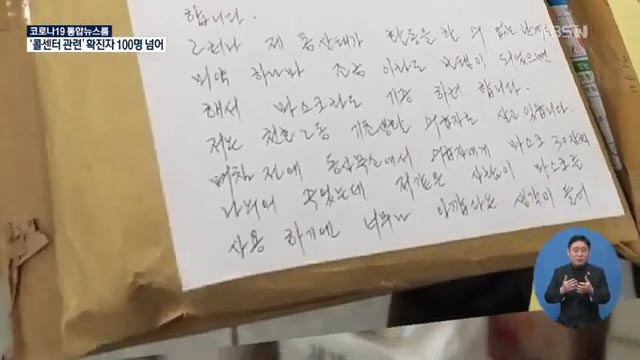 코로나19 통합뉴스룸
'콜센터 관련' 확진자 100명 넘어
KBSN
합니다.
그러나 제 몸상태가 활동을 할 수 없는
미약 하나마 조금 이라도 도움이 되었으면
해서 마스크라도 기증 하려 합니다.
저는 천호2동 기초생활 수급자로 살고 있습니다.
며칠 전에 동사무소에서 수급자에게 마스크 30장씩
나뉘어 주었는데 저같은 사람이 마스크를
사용 하기엔 너무나 아깝다는 생각이 들어